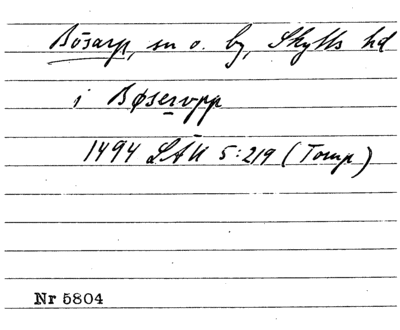 Bösarp, sn o. by, Skytts hd
i Bøservpp
1494 LÄU 5:219 (Tomp)
Nr 5804